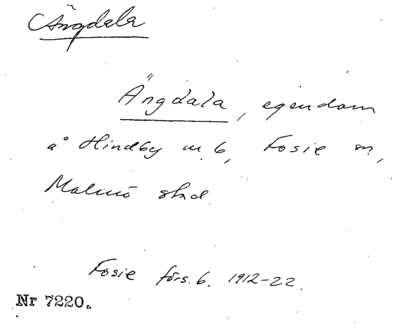 Ängdala
Ängdala, egendom
å Hindby nr 6, Fosie sn,
Malmö stad.
Fosie förs. b. 1912-22.
Nr 7220.